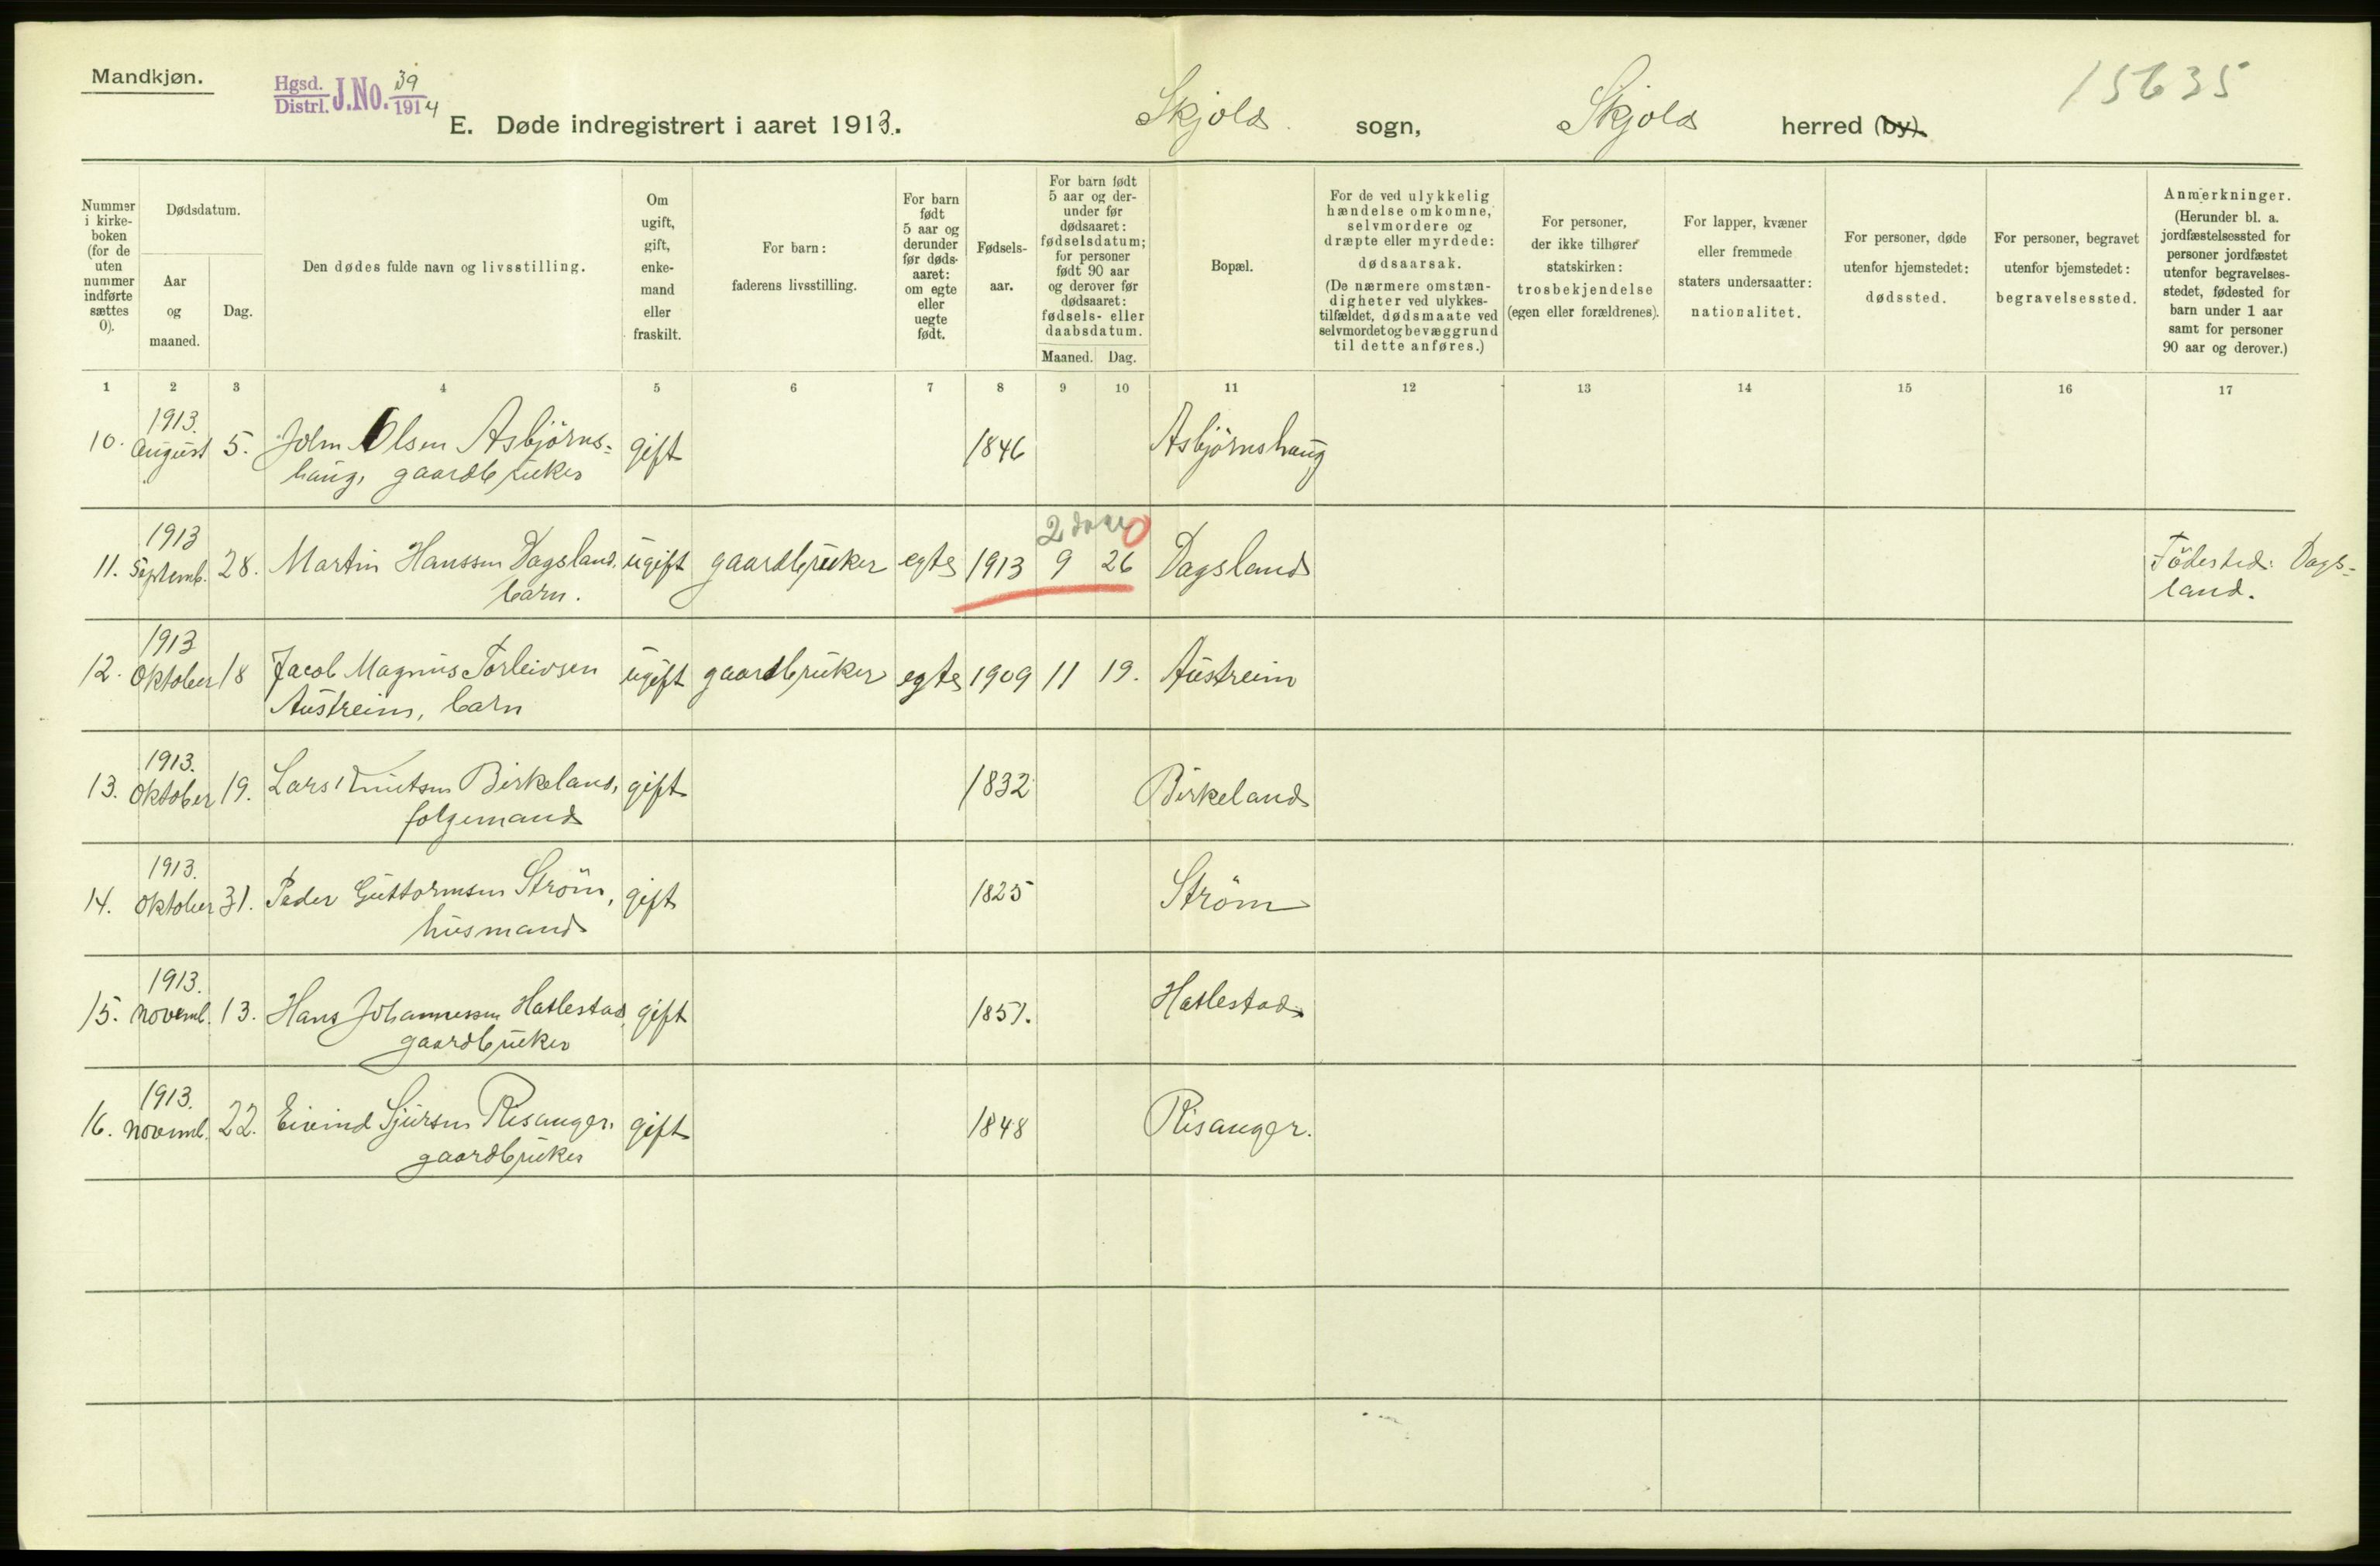 Mandkjøn.
Hgsd. Distrl. J.No. 39 1914
15635
E. Døde indregistrert i aaret 1913. Skjold sogn, Skjold herred (by).
Nummer i kirke- boken (for de uten nummer indførte sættes 0).
Dødsdatum.
Aar og maaned.
Dag.
Den dødes fulde navn og livsstilling.
Om ugift, gift, enke- mand eller fraskilt.
For barn: faderens livsstilling.
For barn født 5 aar og derunder før døds- aaret: om egte eller uegte født.
Fødsels- aar.
For barn født 5 aar og der- under før dødsaaret: fødselsdatum; for personer født 90 aar og derover før dødsaaret: fødsels- eller daabsdatum.
Maaned. Dag.
Bopæl.
For de ved ulykkelig hændelse omkomne, selvmordere og dræpte eller myrdede: dødsaarsak. (De nærmere omstæn- digheter ved ulykkes- tilfældet, dødsmaate ved selvmordet og bevæggrund til dette anføres.)
For personer, der ikke tilhører statskirken: trosbekjendelse (egen eller forældrenes).
For lapper, kvæner eller fremmede staters undersaatter: nationalitet.
For personer, døde utenfor hjemstedet: dødssted.
For personer, begravet utenfor bjemstedet: begravelsessted.
Anmerkninger. (Herunder bl. a. jordfæstelsessted for personer jordfæstet utenfor begravelses- stedet, fødested for barn under 1 aar samt for personer 90 aar og derover.)
1 2 3 4 5 6 7 8 9 10 11 12 13 14 15 16 17
1913.
10. August 5. John Olsen Asbjörns= gift 1846 Asbjörnshaug
haug, gaardbruker
2 0
1913
11. Septemb. 28. Martin Hanssen Dagsland, ugift gaardbruker egte 1913 9 26 Dagsland Födested: Dags=
barn. land.
1913
12. Oktober 18 Jacob Magnus Torleivsen ugift gaardbruker egte 1909 11 19. Austreim
Austreim, barn
1913.
13. Oktober 19. Lars Knutsen Birkeland, gift 1832 Birkeland
folgemand
1913.
14. Oktober 31. Peder Guttormsen Ström, gift 1825 Ström
husmand
1913.
15. Novemb. 13. Hans Johannessen Hatlestad, gift 1851. Hatlestad
gaardbruker
1913.
16. Novemb. 22. Eivind Sjursen Risanger, gift 1848 Risanger.
gaardbruker